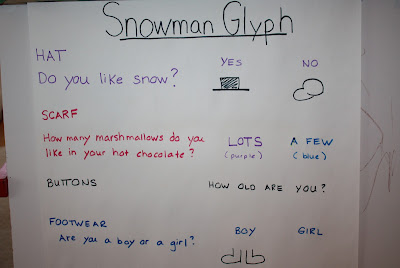 Snowman Glyph
HAT YES NO
Do you like snow?
SCARF
How many marshmallows do you LOTS A FEW
like in your hot chocolate? (purple) (blue)
BUTTONS HOW OLD ARE YOU?
FOOTWEAR BOY GIRL
Are you a boy or a girl?